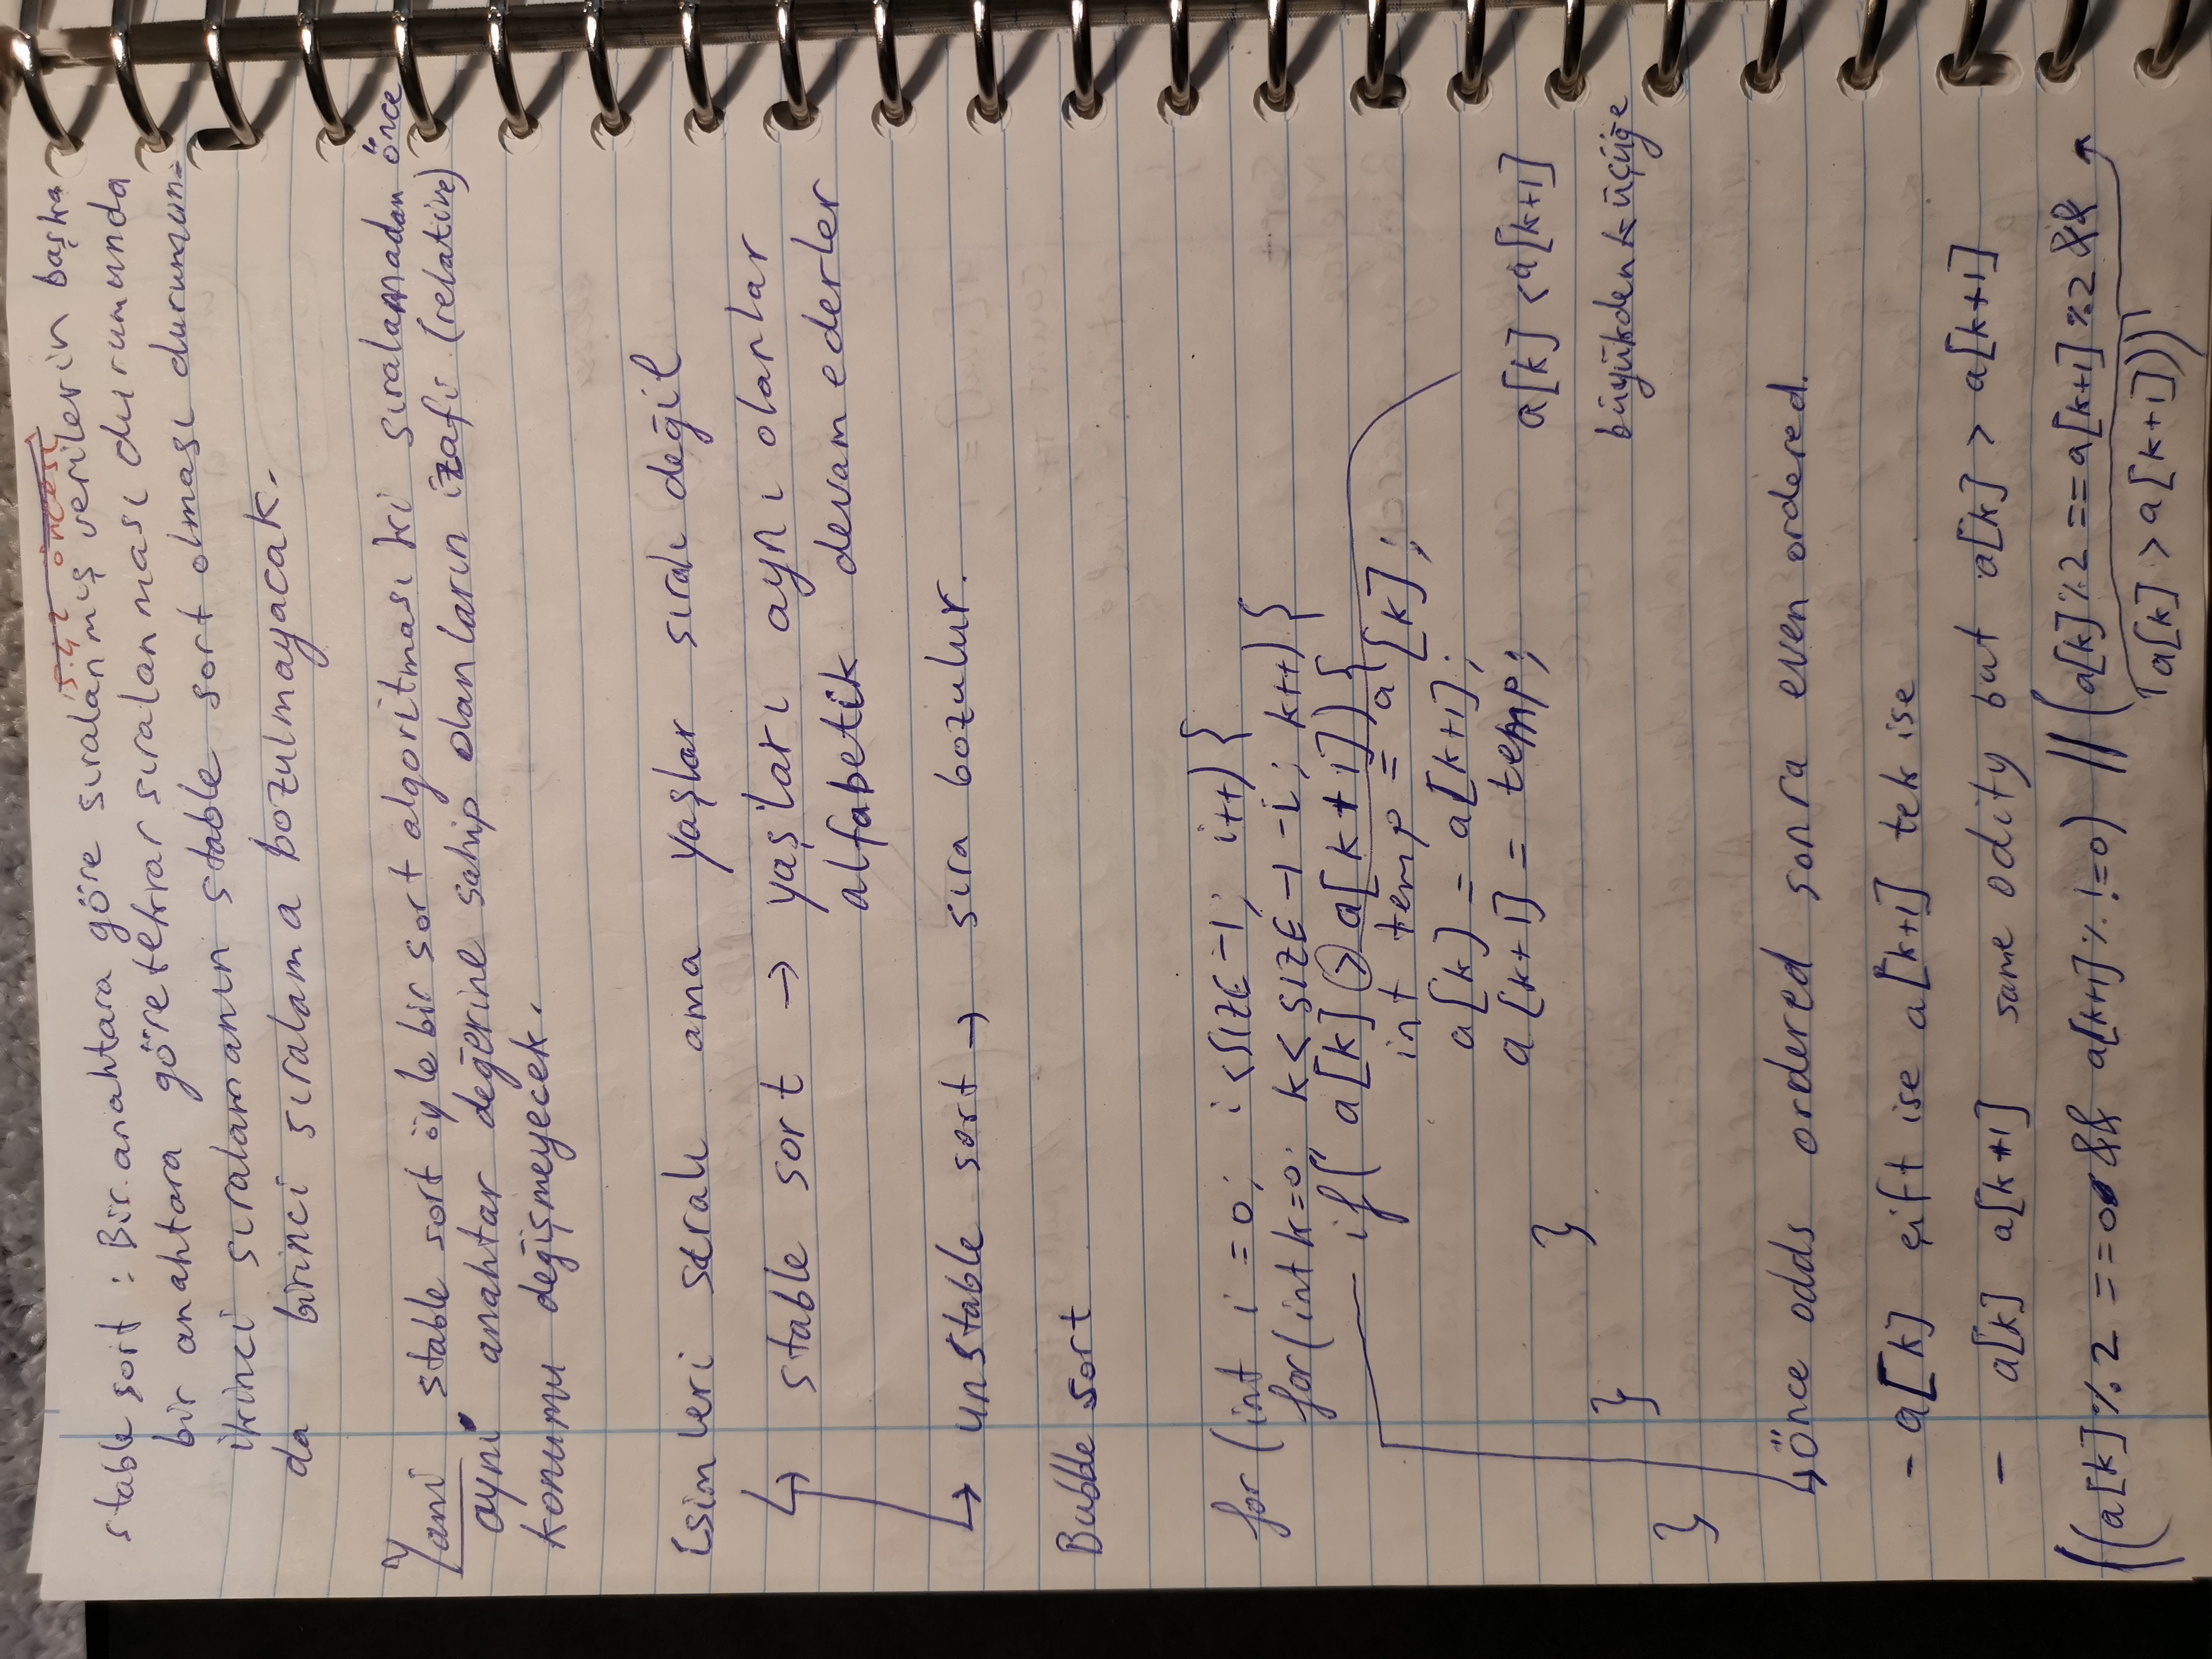 15.42 öncesi
stable sort : Bir anahtara göre sıralanmış verilerin başka
bir anahtara göre tekrar sıralanması durumunda
ikinci sıralamanın stable sort olması durumun-
da birinci sıralama bozulmayacak.
Yani stable sort öyle bir sort algoritması ki sıralamadan önce
ayni anahtar değerine sahip olanların izafi (relative)
konumu değişmeyecek.
isimleri sıralı ama yaşlar sıralı değil
↳ stable sort → yaşları aynı olanlar
alfabetik devam ederler
↳ unstable sort → sıra bozulur.
Bubble sort
for (int i = 0; i < SIZE -1; i++) {
for (int k=0; k < SIZE -1 -i; k++) {
if( a[k] > a[k+1]) {
int temp = a[k];
a[k] = a[k+1];
a[k+1] = temp;
a[k] < a[k+1]
}
büyükden küçüğe
}
}
↳ önce odds ordered sonra even ordered.
- a[k] çift ise a[k+1] tek ise
- a[k] a[k+1] same odity but a[k] > a[k+1]
((a[k]%2 ==0 && a[k+1]% !=0) || (a[k]%2 == a[k+1]%2 &&
a[k] > a[k+1]))